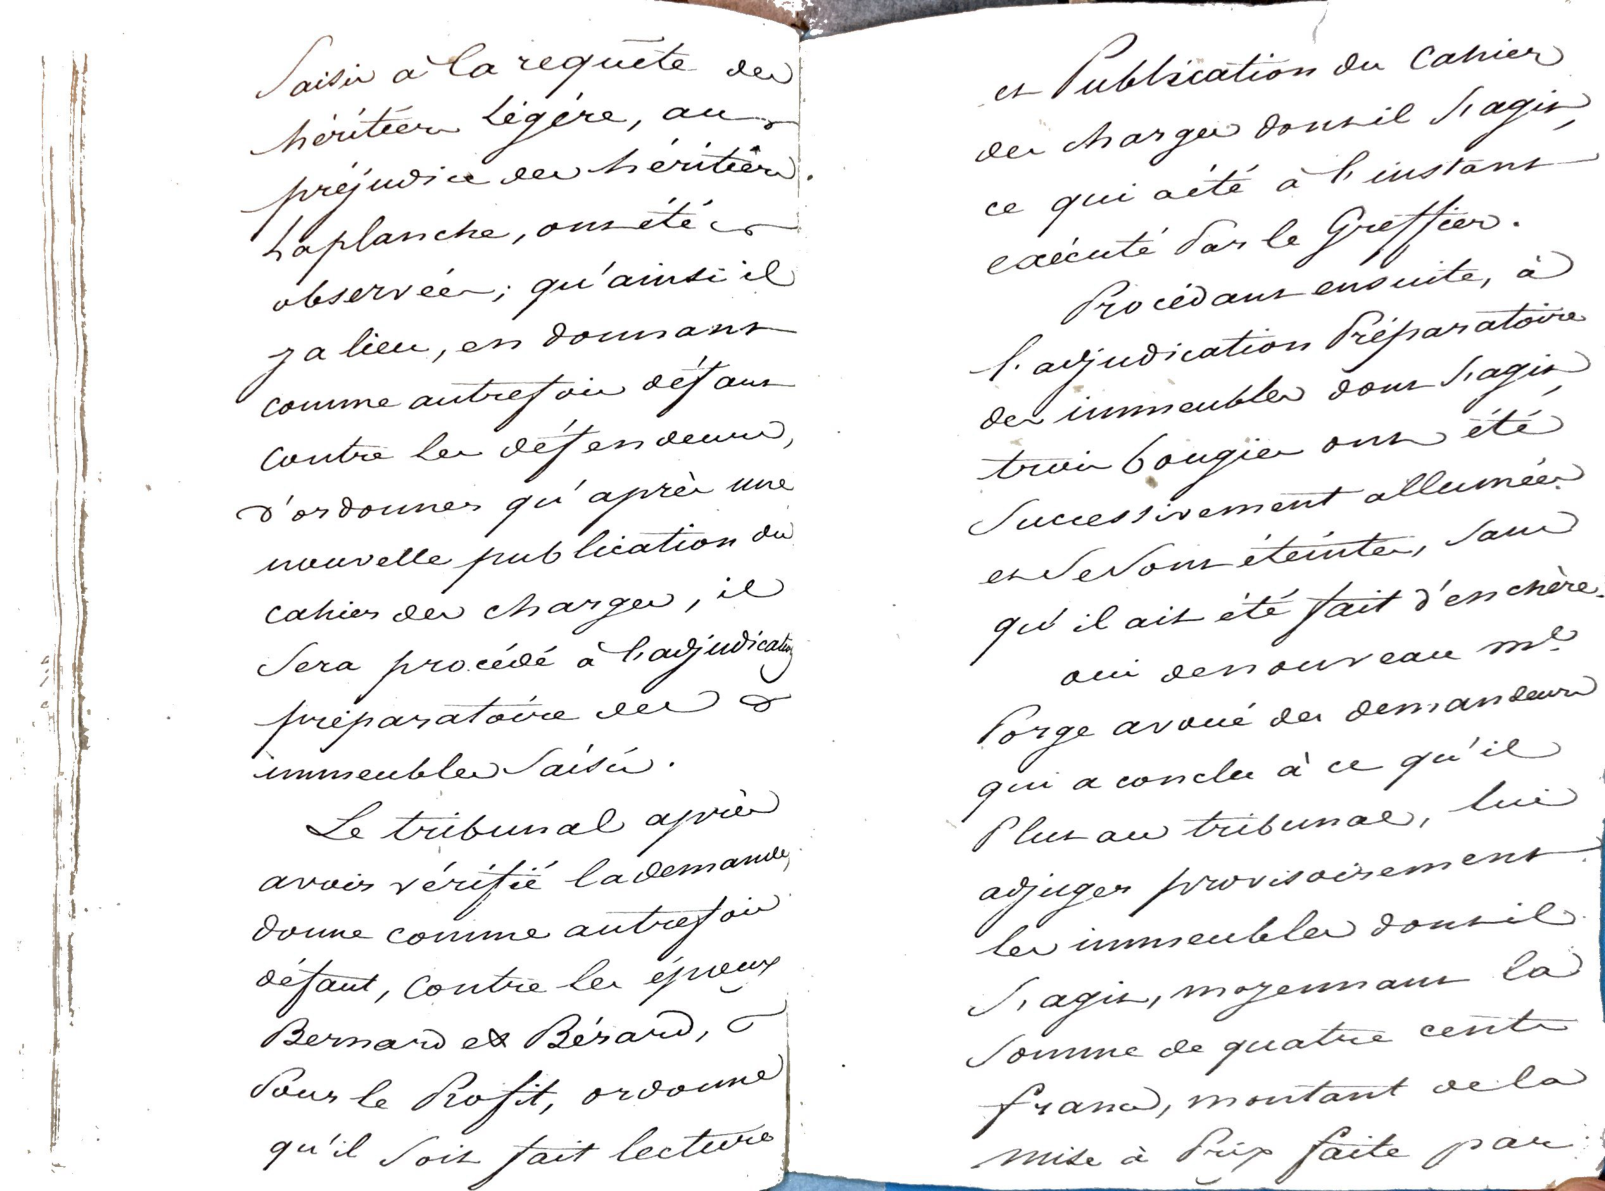 Saisis à la requête des
héritiers Légère, au
préjudice des héritiers
Laplanche, ont été
observées; qu'ainsi il
y a lieu, en donnant
comme autrefois défaut
contre les défendeurs,
d'ordonner qu'après une
nouvelle publication du
cahier des charges, il
sera procédé à l'adjudication
préparatoire des
immeubles saisis.
Le tribunal après
avoir vérifié la demande,
donne comme autrefois
défaut, contre les époux
Bernard et Bérard,
Pour le Profit, ordonne
qu'il soit fait lecture
et Publication du Cahier
des charges dont il s'agit,
ce qui a été à l'instant
exécuté Par le Greffier.
Procédant ensuite, à
l'adjudication Préparatoire
des immeubles dont s'agit,
trois bougies ont été
successivement allumées
et se sont éteintes, sans
qu'il ait été fait d'enchère.
oui de nouveau Me
Porge avoué des demandeurs
qui a conclu à ce qu'il
Plut au tribunal, lui
adjuger provisoirement
les immeubles dont il
s'agit, moyennant la
somme de quatre cents
francs, montant de la
mise à Prix faite par